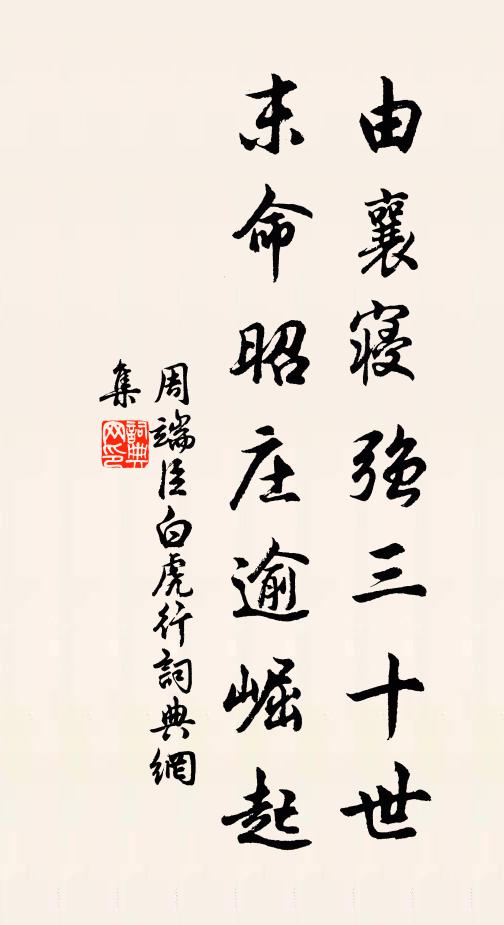 由襄寝強三十世
末命昭庄逾崛起
周端臣白虎行詞典網
集
詞典网印